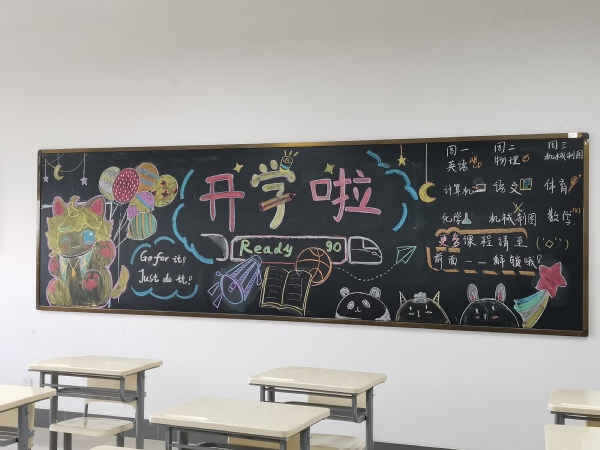 开学啦
Ready go
Go for it!
Just do it!
周一 周二 周三
英语 物理 机械制图
计算机 语文 体育
化学 机械制图 数学
更多课程请至
前面——解锁哦？